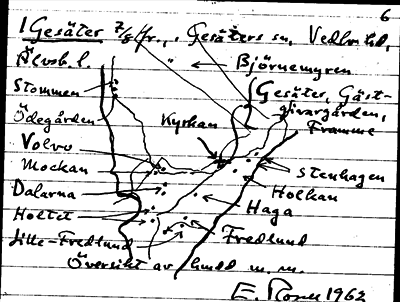 6
1 Gesäter 7/8 fr., Gesäters sn, Vedbo hd,
Älvsb. l.
Björnemyren
Stommen
Gesäter, Gäst-
givargården,
Framme
Ödegården
Kyrkan
Volvo
Mockan
Stenhagen
Dalarna
Holkan
Haga
Holtet
Lille-Fredlund
Fredlund
Översikt av hmdd m. m.
1962